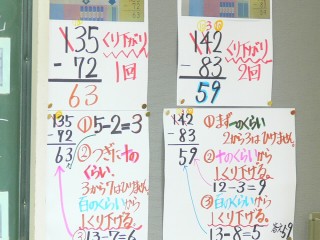 135
- 72
63
くり下がり
1回
142
- 83
59
くり下がり
2回
135
- 72
63
① 5-2=3
② つぎに十の
くらい
3から7はひけません。
百のくらいから
1くり下げる。
③ 13-7=6
142
- 83
59
① まず一のくらい
2から3はひけません。
② 十のくらいから
1くり下げる。
12-3=9
百のくらいから
1くり下げる。
13-8=5
答え59